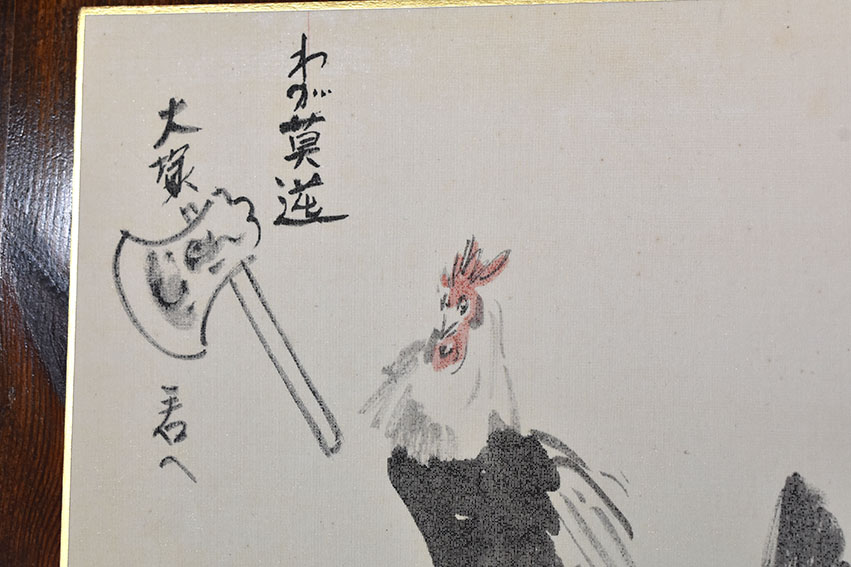 わが莫逆
大塚
君へ